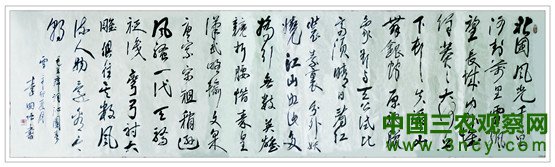 北国风光千里
冰封万里雪飘
望长城内外惟
余莽莽大河上
下顿失滔滔山
舞银蛇原驰蜡
象欲与天公试比
高须晴日看红
装素裹分外妖
娆江山如此多
娇引无数英雄
竞折腰惜秦皇
汉武略输文采
唐宗宋祖稍逊
风骚一代天骄
只识弯弓射大
雕俱往矣数风
流人物还看今
朝
毛主席词沁园春
雪
中国三农观察网
www.sncgy.com